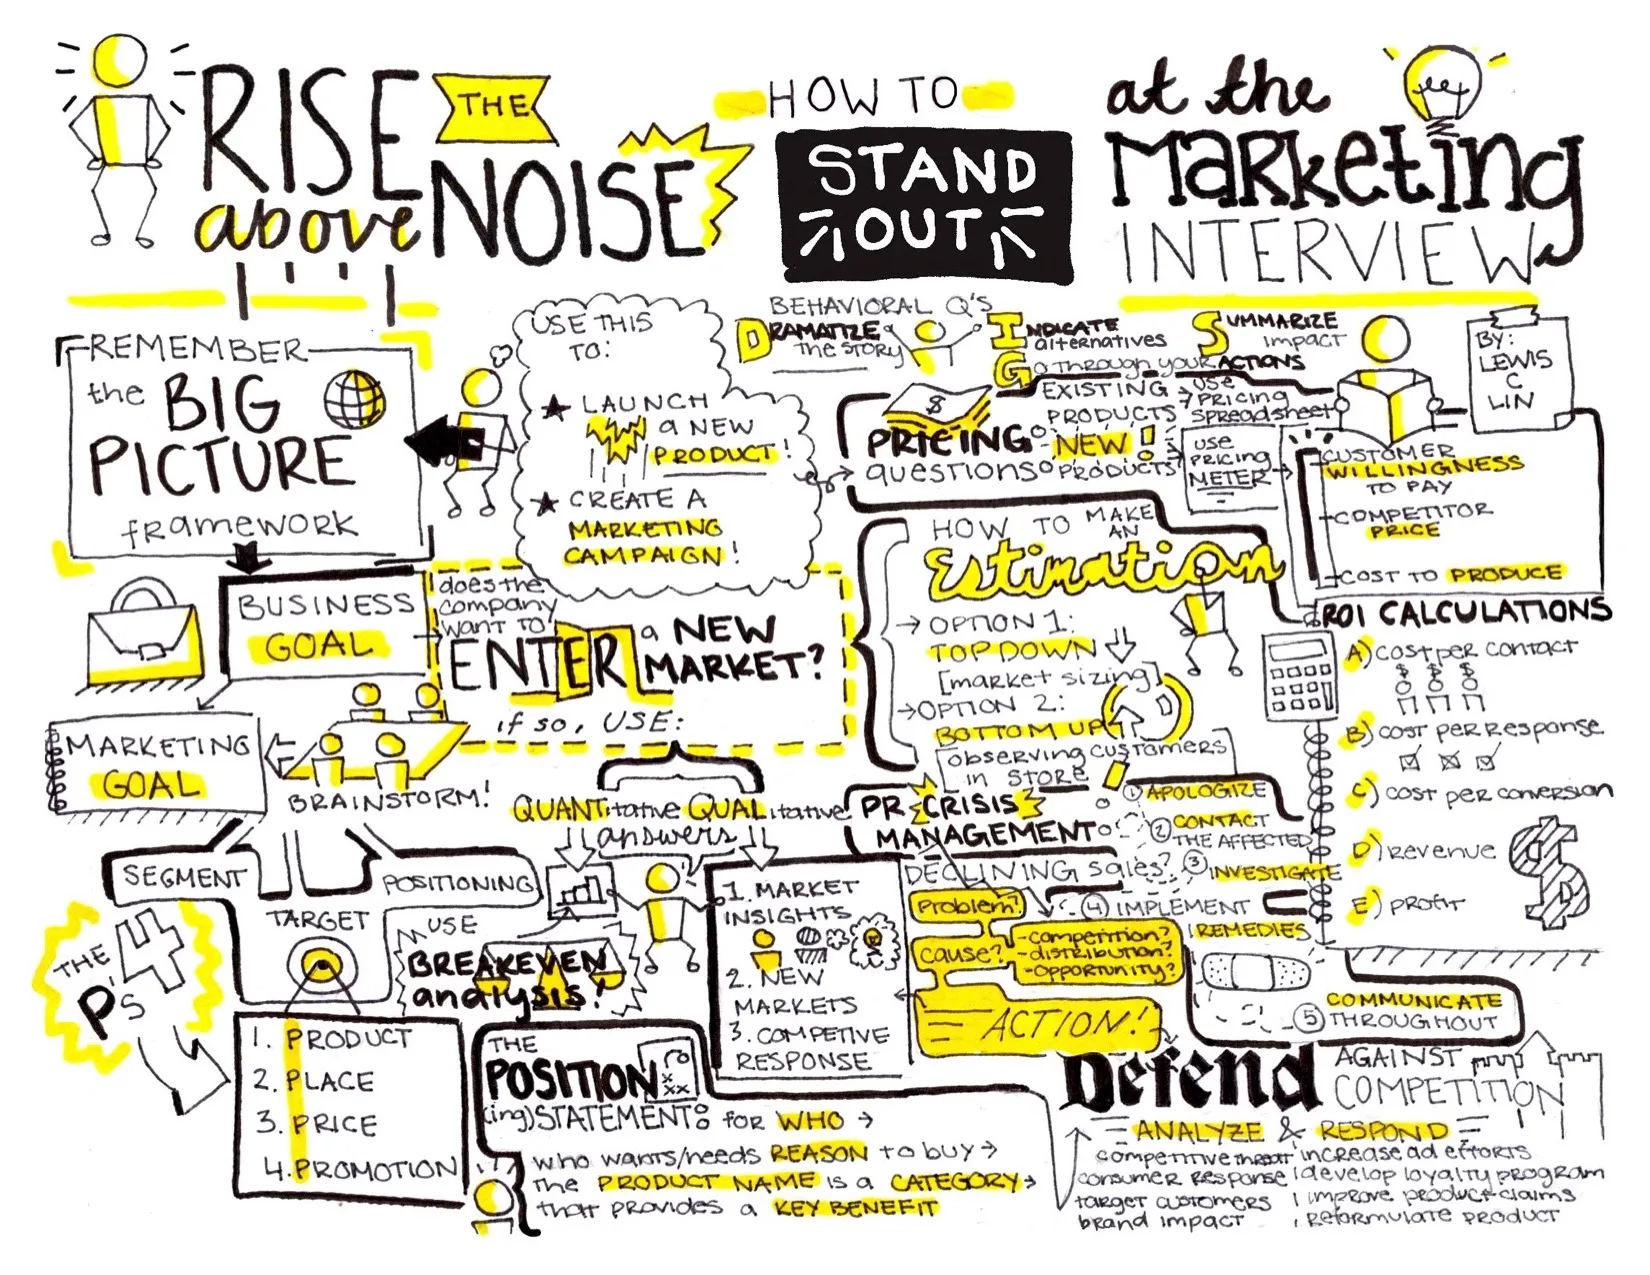 RISE above
THE
NOISE
HOW TO
STAND
OUT
at the
MARKETING
INTERVIEW
REMEMBER
the BIG
PICTURE
framework
USE THIS
TO:
★ LAUNCH
a NEW
PRODUCT!
★ CREATE A
MARKETING
CAMPAIGN!
BEHAVIORAL Q'S
DRAMATIZE
the STORY
INDICATE
alternatives
GO through your ACTIONS
SUMMARIZE
impact
BY:
LEWIS
C
LIN
$
PRICING
questions
EXISTING
PRODUCTS
→ use
pricing
spreadsheet
NEW!
PRODUCTS
use
pricing
METER
CUSTOMER
WILLINGNESS
TO PAY
COMPETITOR
PRICE
COST TO PRODUCE
BUSINESS
GOAL
does the
company
want to
ENTER a NEW
MARKET?
if so, USE:
MARKETING
GOAL
BRAINSTORM!
HOW TO MAKE
AN
Estimation
→ OPTION 1:
TOP DOWN
[market sizing]
→ OPTION 2:
BOTTOM UP
observing customers
in STORE
ROI CALCULATIONS
A) cost per contact
$ $ $
B) cost per response
C) cost per conversion
D) revenue
E) profit
$
QUANTitative QUALitative
answers
SEGMENT
TARGET
POSITIONING
THE
4
P's
1. PRODUCT
2. PLACE
3. PRICE
4. PROMOTION
USE
BREAKEVEN
analysis!
1. MARKET
INSIGHTS
2. NEW
MARKETS
3. COMPETIVE
RESPONSE
PR CRISIS
MANAGEMENT
① APOLOGIZE
② CONTACT
THE AFFECTED
③ INVESTIGATE
④ IMPLEMENT
REMEDIES
⑤ COMMUNICATE
THROUGHOUT
DECLINING sales?
Problem?
cause?
-competition?
-distribution?
-opportunity?
ACTION!
THE
POSITION
(ing) STATEMENT: for WHO →
who wants/needs REASON to buy →
the PRODUCT NAME is a CATEGORY →
that provides a KEY BENEFIT
Defend AGAINST
COMPETITION
ANALYZE & RESPOND
competitive threat
consumer response
target customers
brand impact
increase ad efforts
develop loyalty program
improve product claims
reformulate product